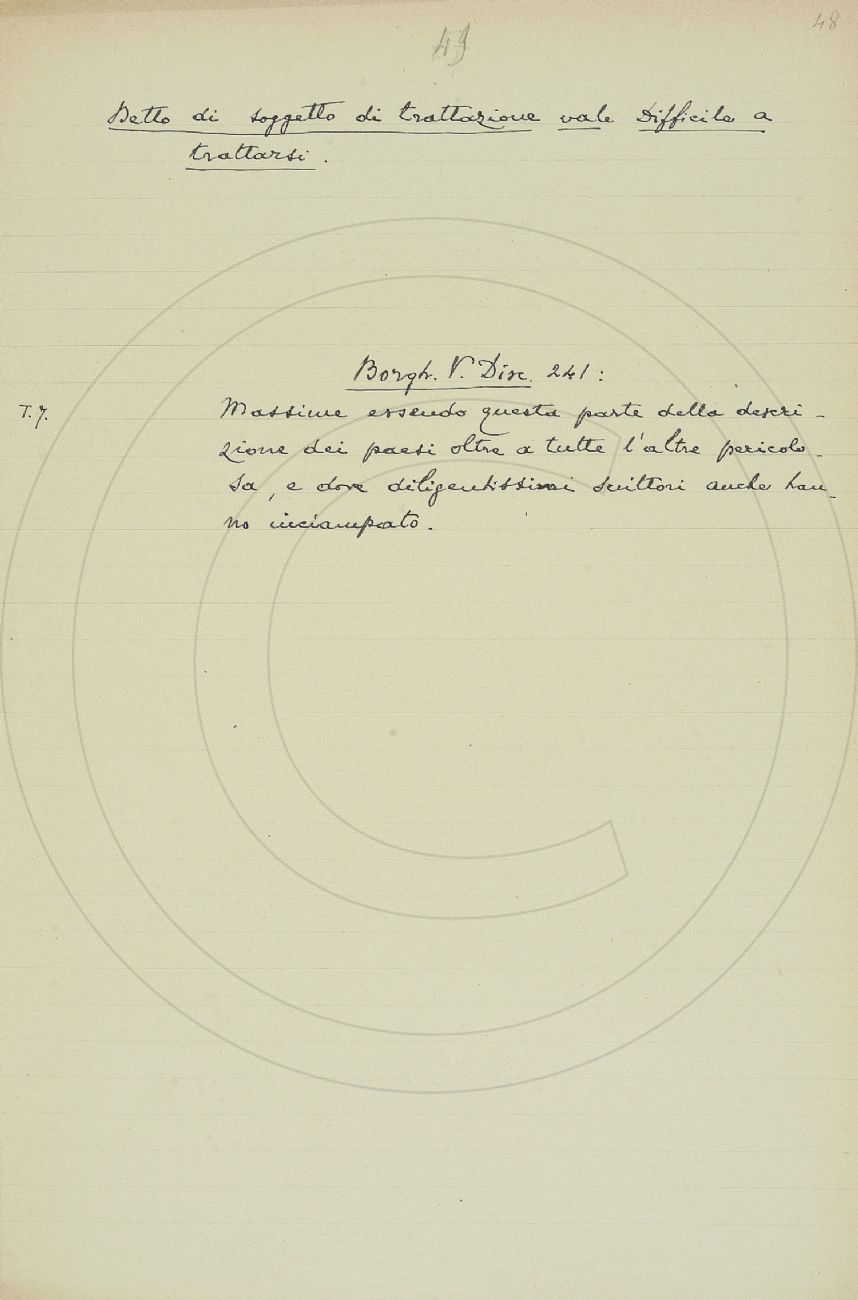 48
49
Detto di soggetto di trattazione vale Difficile a
trattarsi.
Borgh. V. Disc. 241:
T. 7.
Massime essendo questa parte della descri-
zione dei paesi oltre a tutte l'altre pericolo-
sa, e dove diligentissimi scrittori anche han-
no inciampato.